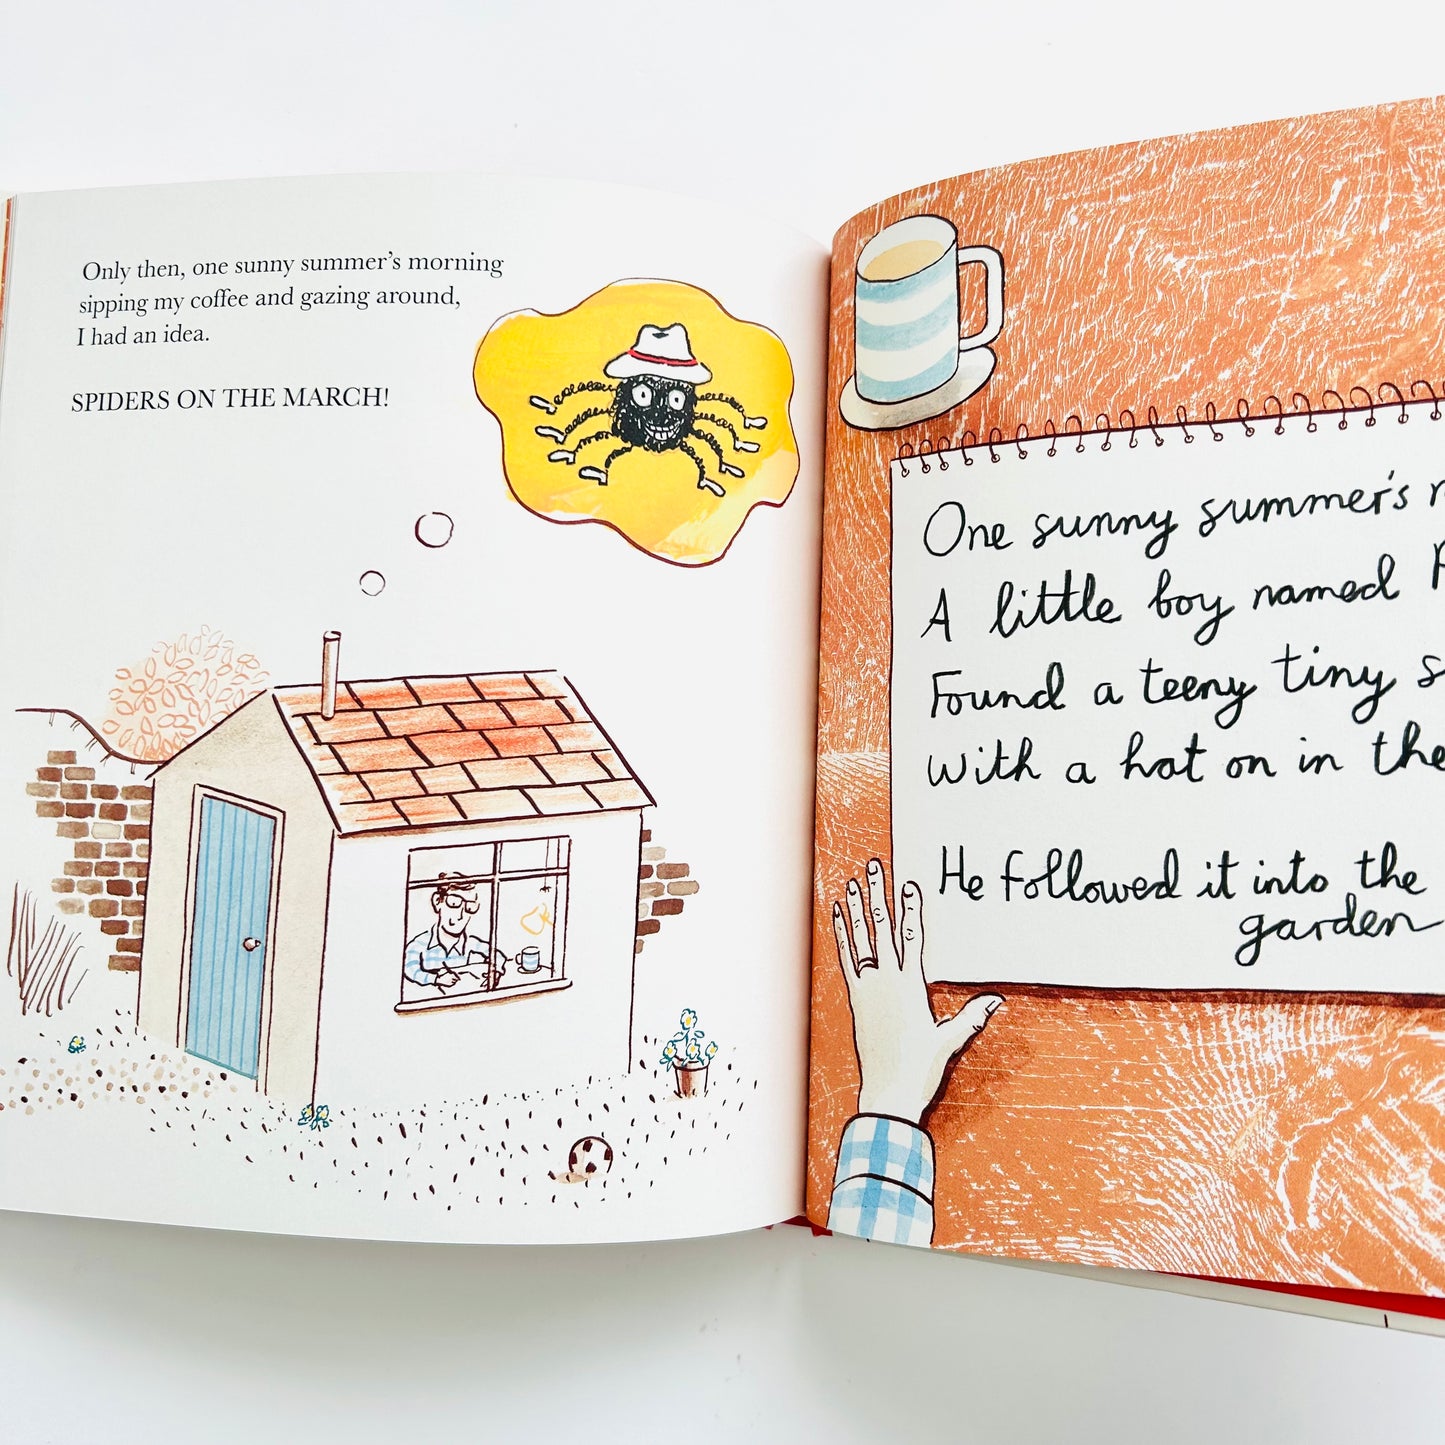 Only then, one sunny summer's morning
sipping my coffee and gazing around,
I had an idea.
SPIDERS ON THE MARCH!
One sunny summer's
A little boy named
Found a teeny tiny
With a hat on in the
He followed it into the
garden